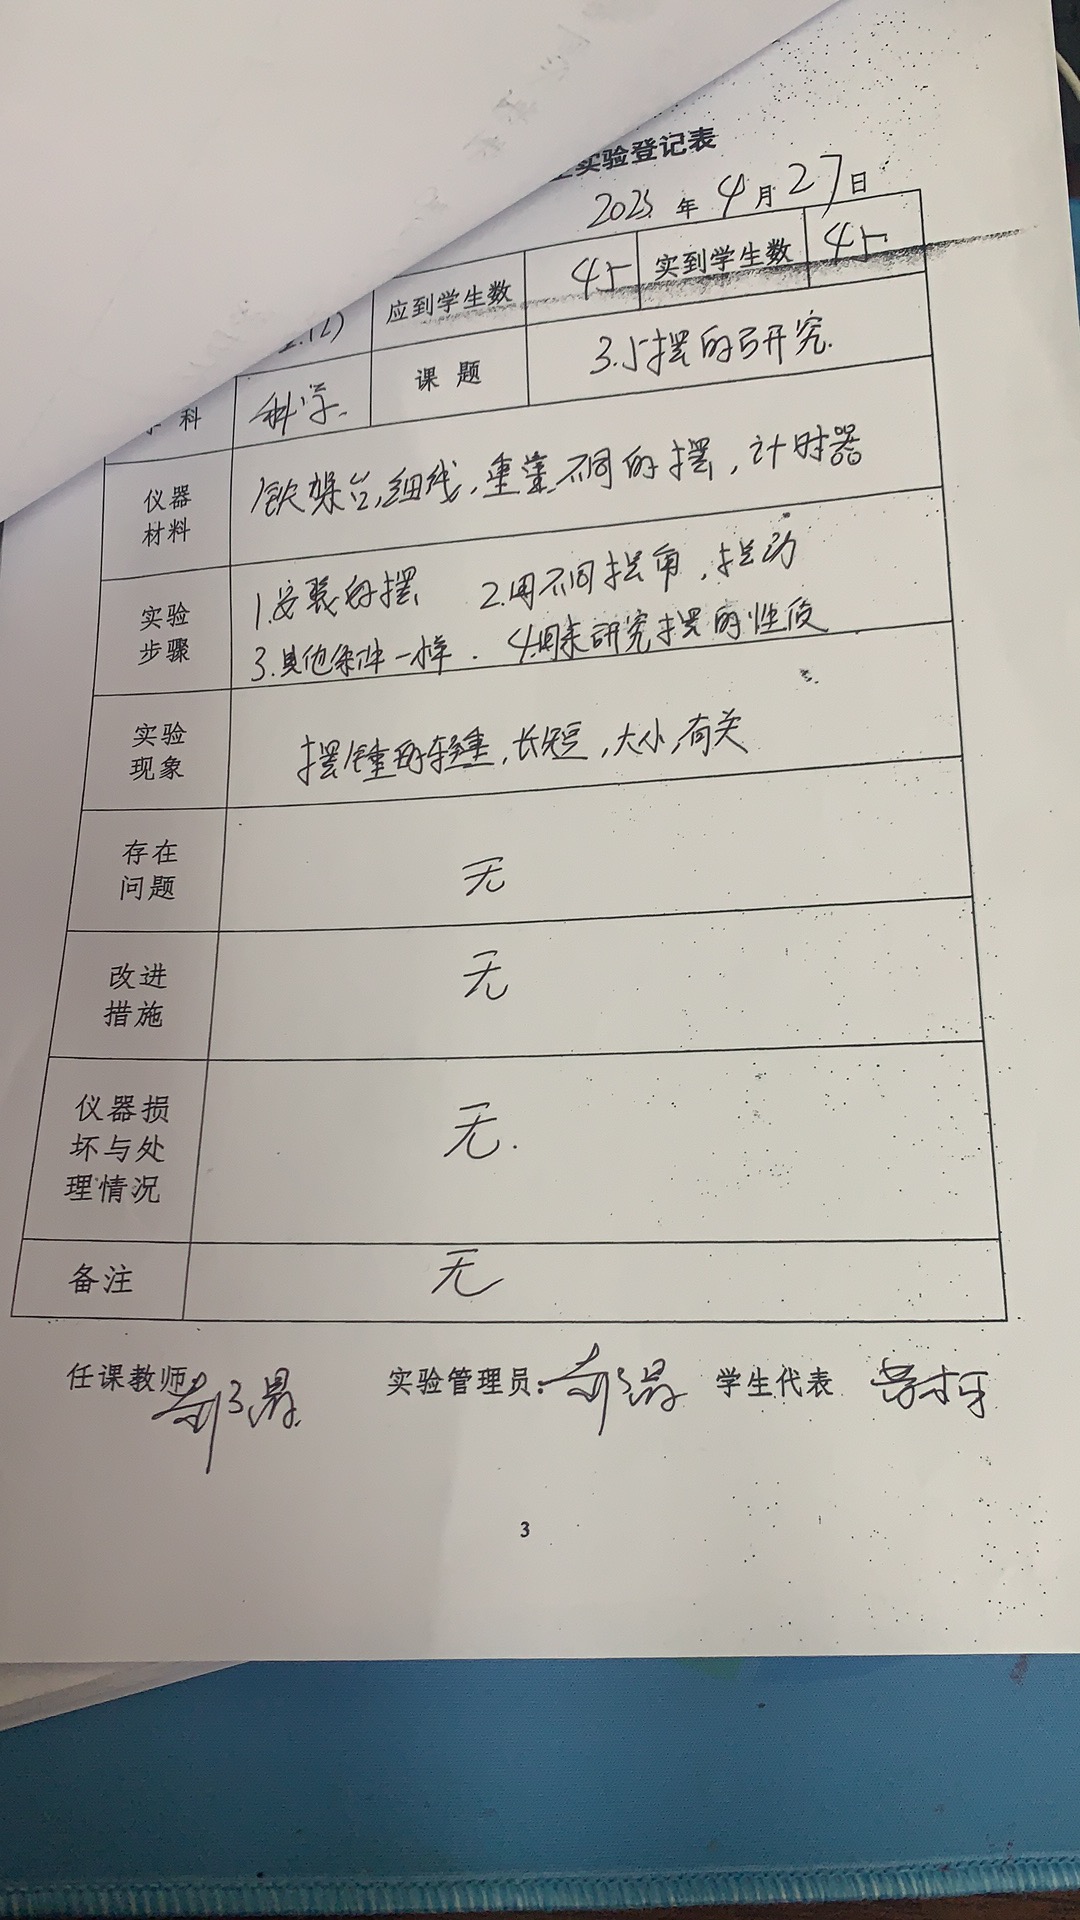 实验登记表
2023年4月27日
应到学生数 45 实到学生数 45
科 科学. 课题 3.5摆的研究.
仪器 铁架台,细线,重量不同的摆,计时器
材料
实验 1.安装的摆 2.用不同摆角,摆动
步骤 3.其他条件一样. 4.用来研究摆的性质
实验 摆锤的轻重,长短,大小,有关
现象
存在
问题 无
改进 无
措施
仪器损
坏与处 无.
理情况
备注 无
任课教师: 实验管理员: 学生代表
3